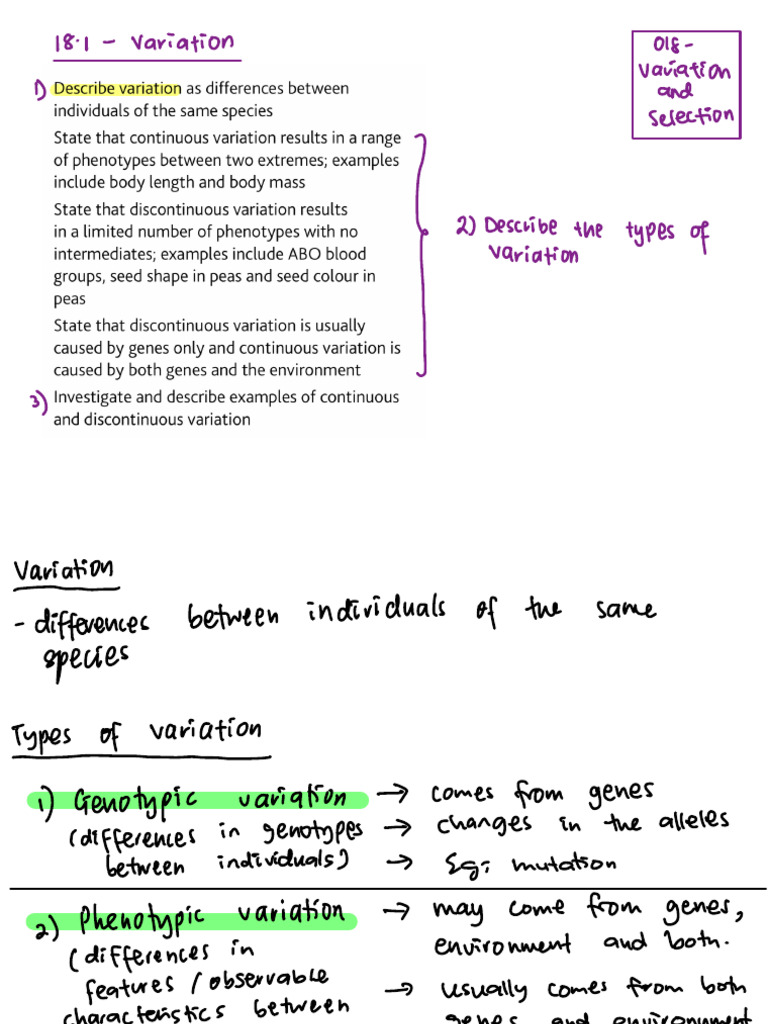 18.1 - Variation
018 -
Variation
and
Selection
1) Describe variation as differences between
individuals of the same species
State that continuous variation results in a range
of phenotypes between two extremes; examples
include body length and body mass
State that discontinuous variation results
in a limited number of phenotypes with no
intermediates; examples include ABO blood
groups, seed shape in peas and seed colour in
peas
State that discontinuous variation is usually
caused by genes only and continuous variation is
caused by both genes and the environment
2) Describe the types of
variation
3) Investigate and describe examples of continuous
and discontinuous variation
Variation
- differences between individuals of the same
species
Types of variation
1) Genotypic variation → comes from genes
(differences in genotypes → changes in the alleles
between individuals) → Eg: mutation
2) Phenotypic variation → may come from genes,
environment and both.
(differences in
features / observable → usually comes from both
characteristics between genes and environment